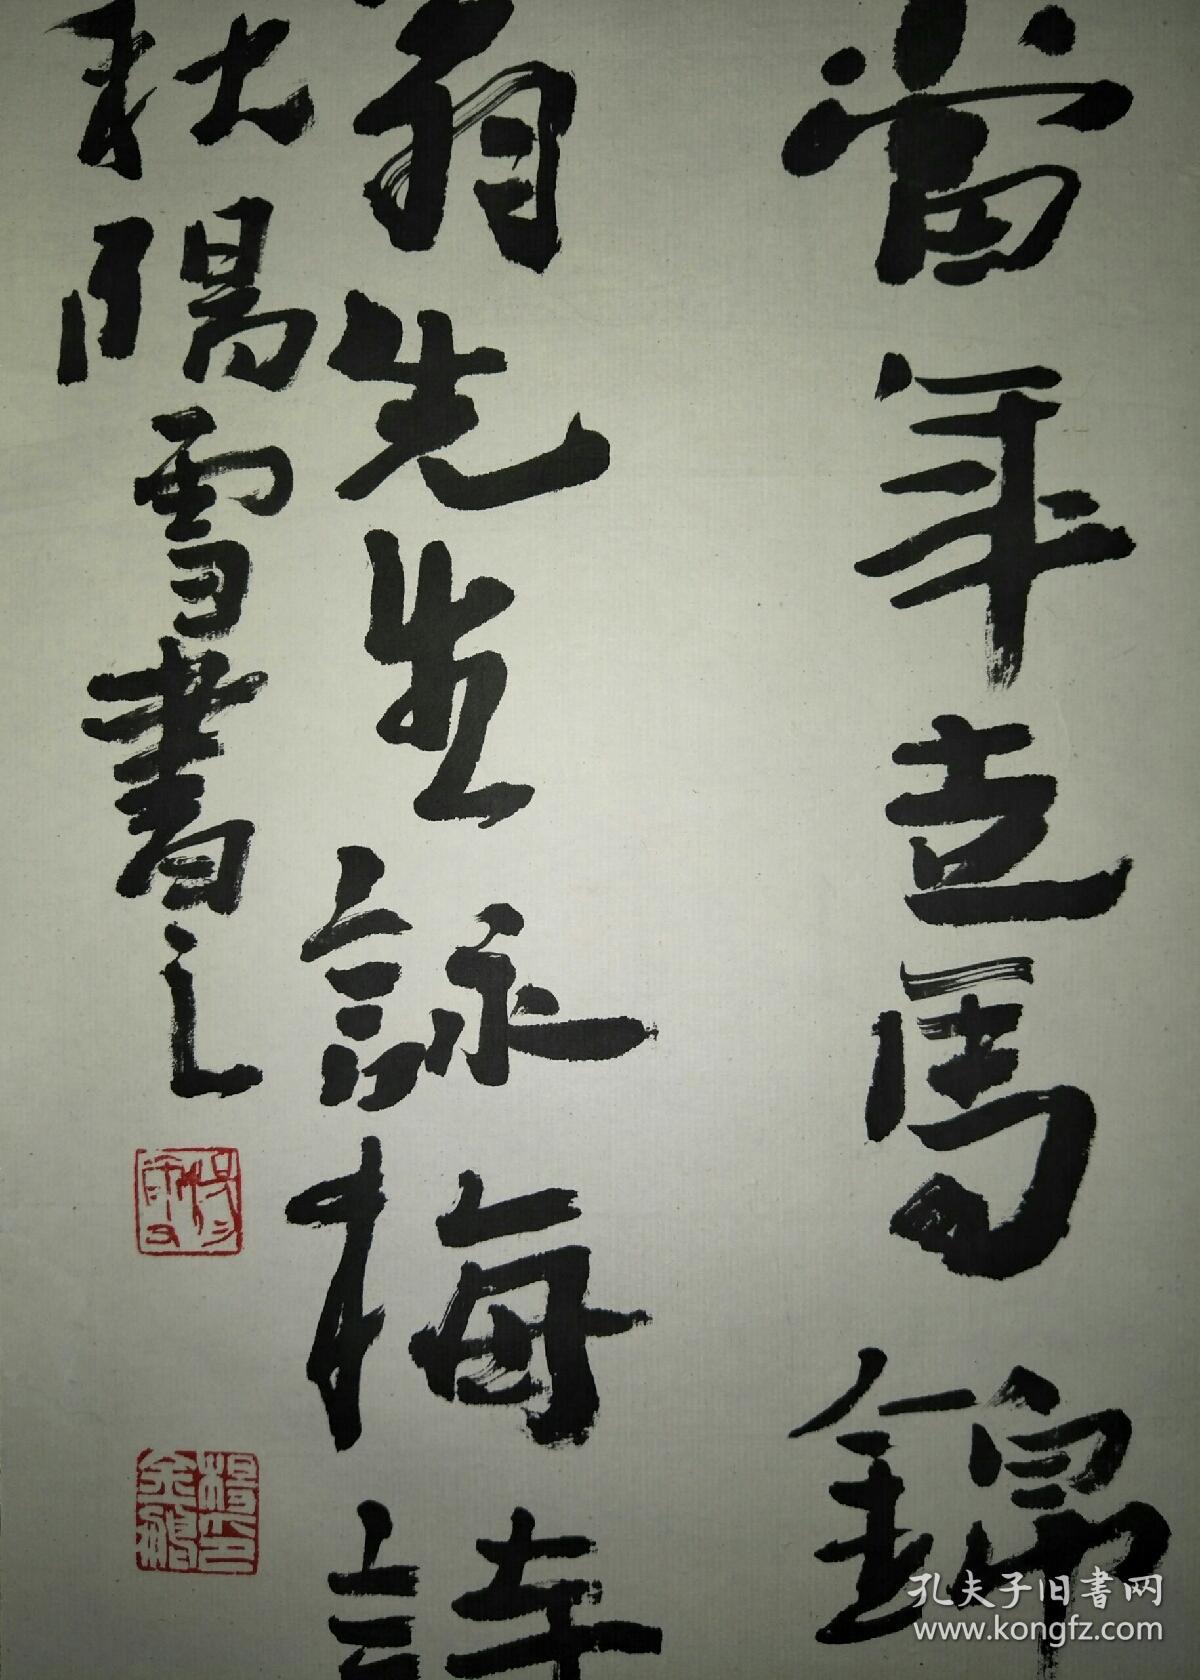 當年走馬錦
翁先生詠梅詩
秋陽雪書之
孔夫子旧書网
www.kongfz.com